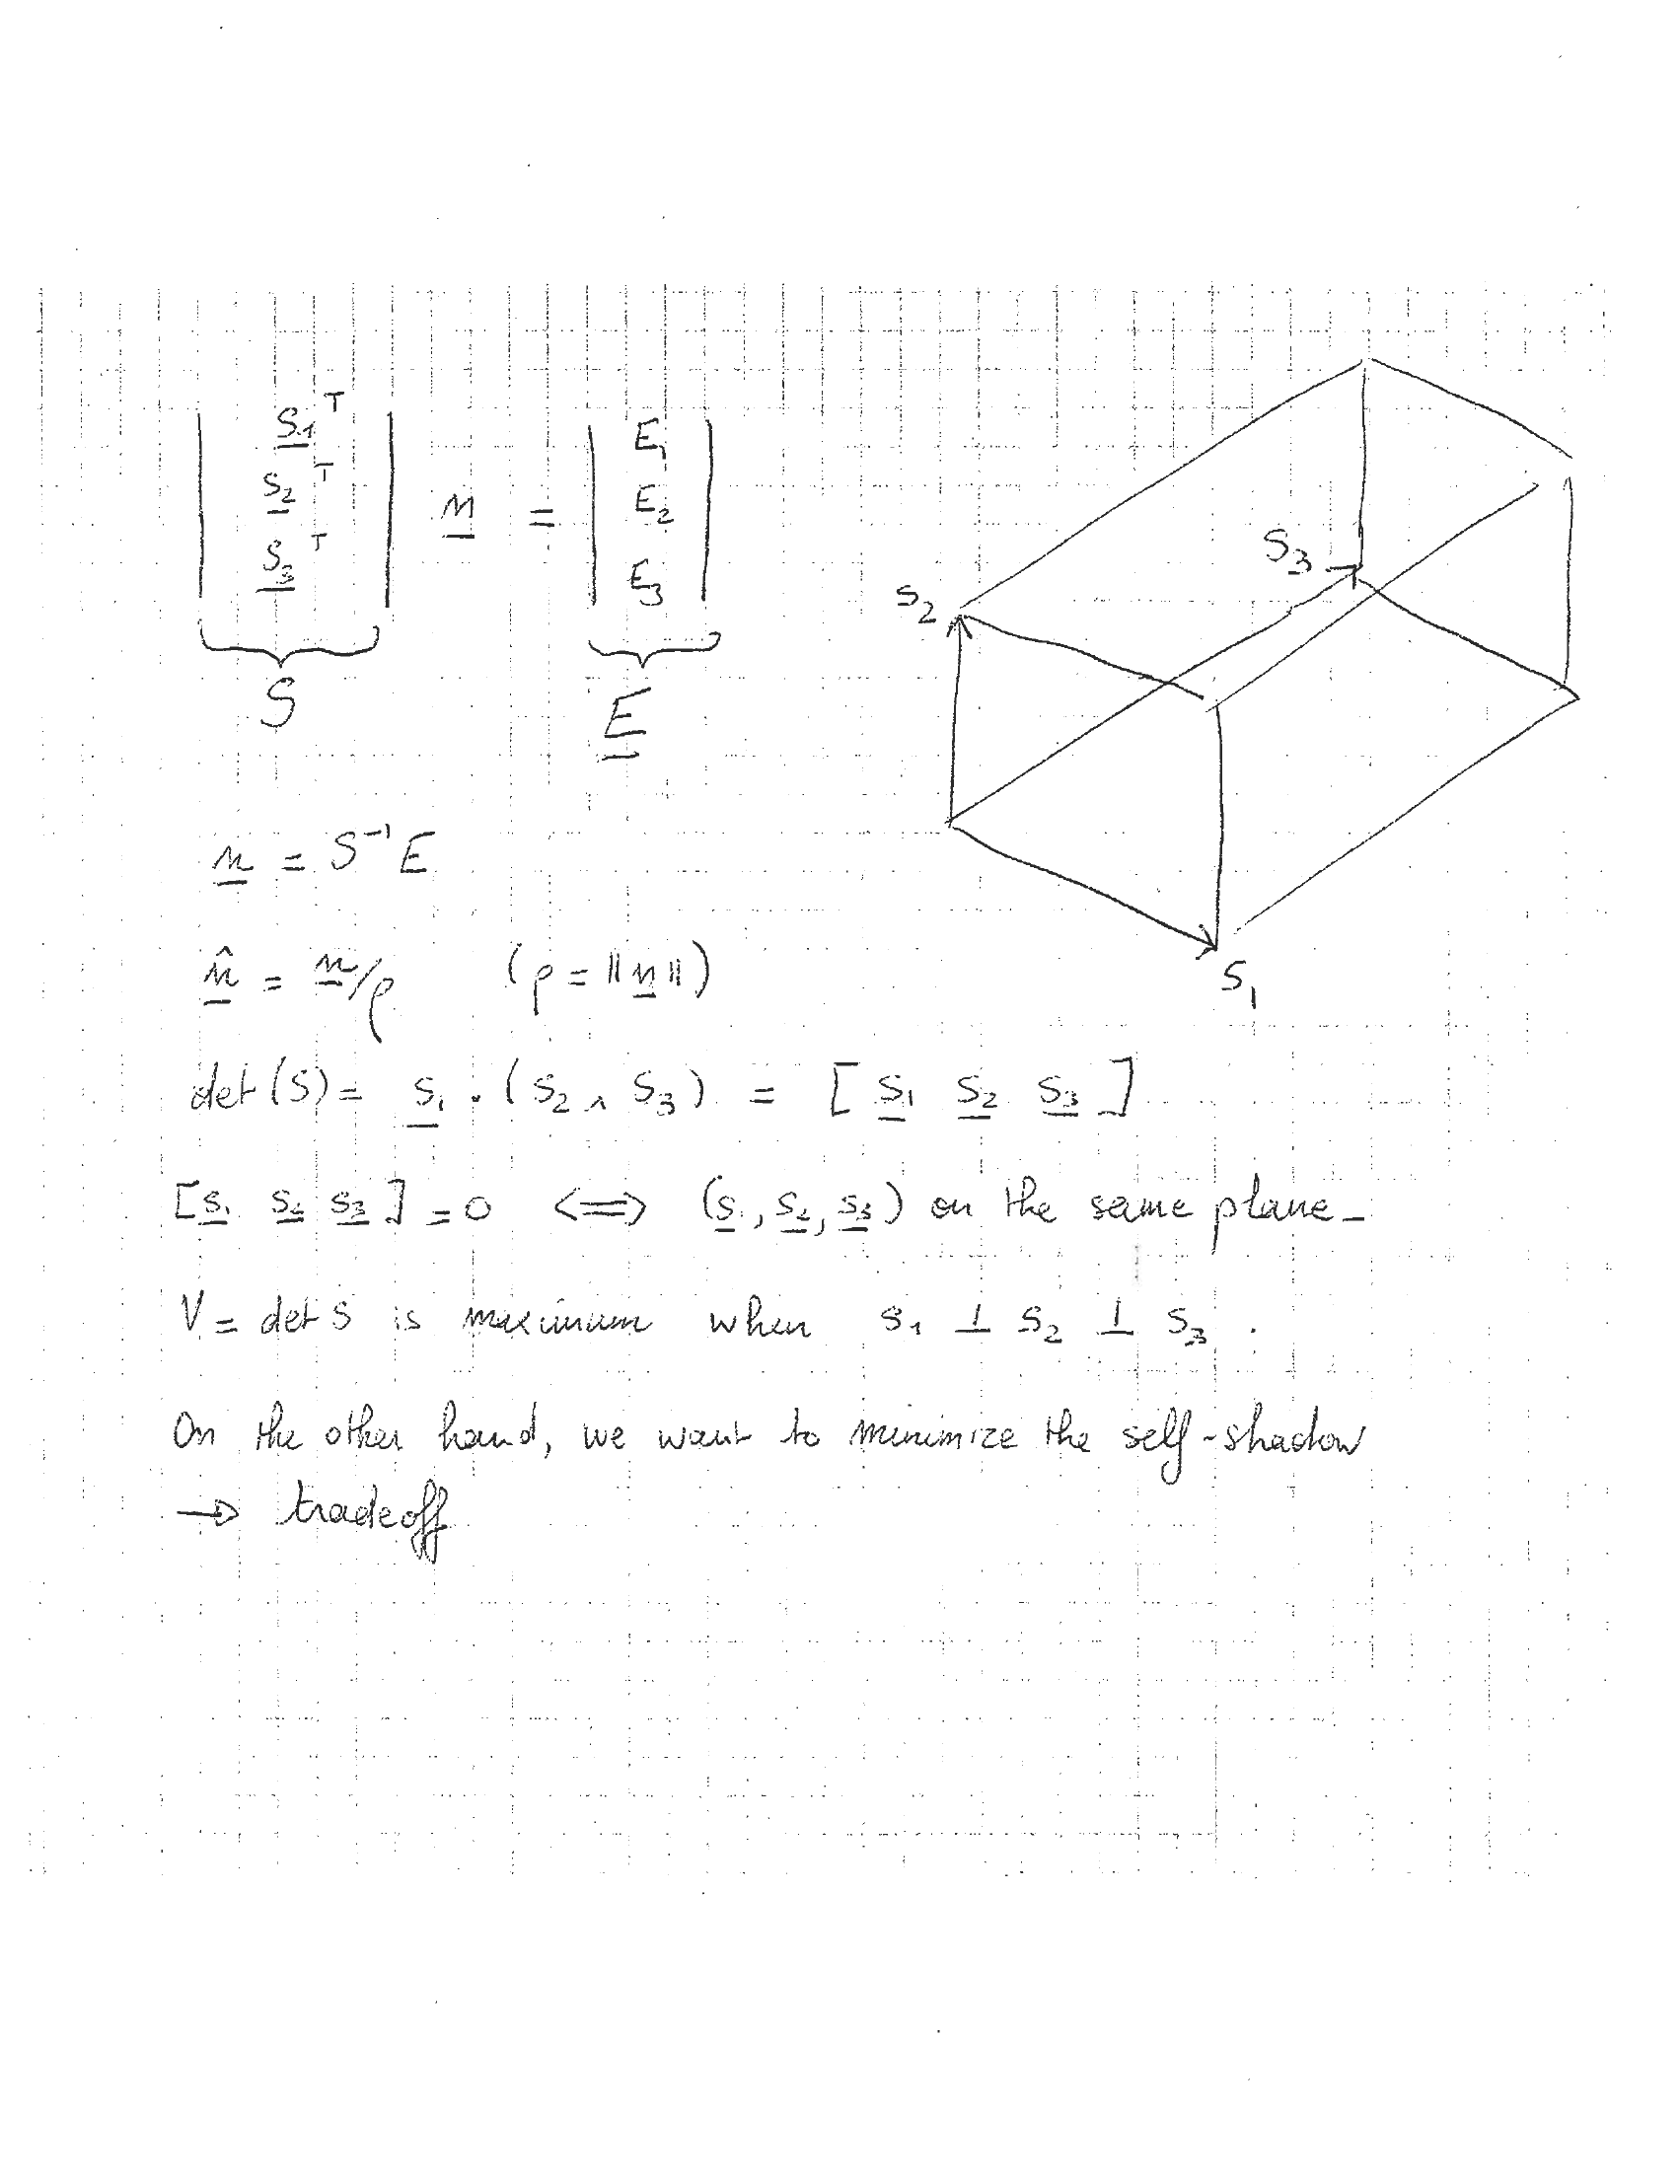 s₁ᵀ
s₂ᵀ n = E₁ E₂ E₃
s₃ᵀ
S E
s₂ s₃ s₁
n = S⁻¹ E
n̂ = n/ρ (ρ = ‖n‖)
det(S) = s₁ . (s₂ ∧ s₃) = [ s₁ s₂ s₃ ]
[s₁ s₂ s₃] = 0 <=> (s₁, s₂, s₃) on the same plane_
V = det S is maximum when s₁ ⊥ s₂ ⊥ s₃ .
On the other hand, we want to minimize the self-shadow
→ tradeoff